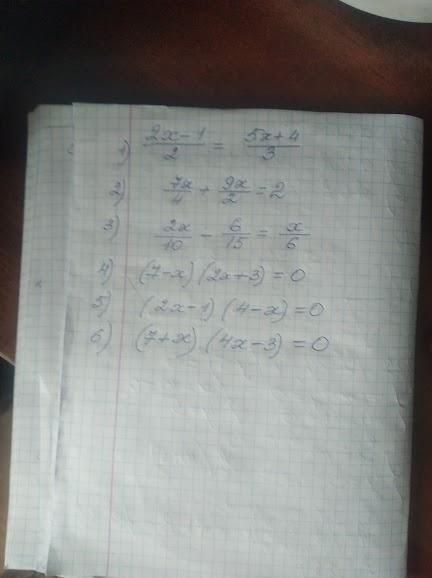 1) (2x-1)/2 = (5x+4)/3
2) 7x/4 + 9x/2 = 2
3) 2x/10 - 6/15 = x/6
4) (7-x)(2x+3)=0
5) (2x-1)(4-x)=0
6) (7+x)(4x-3)=0